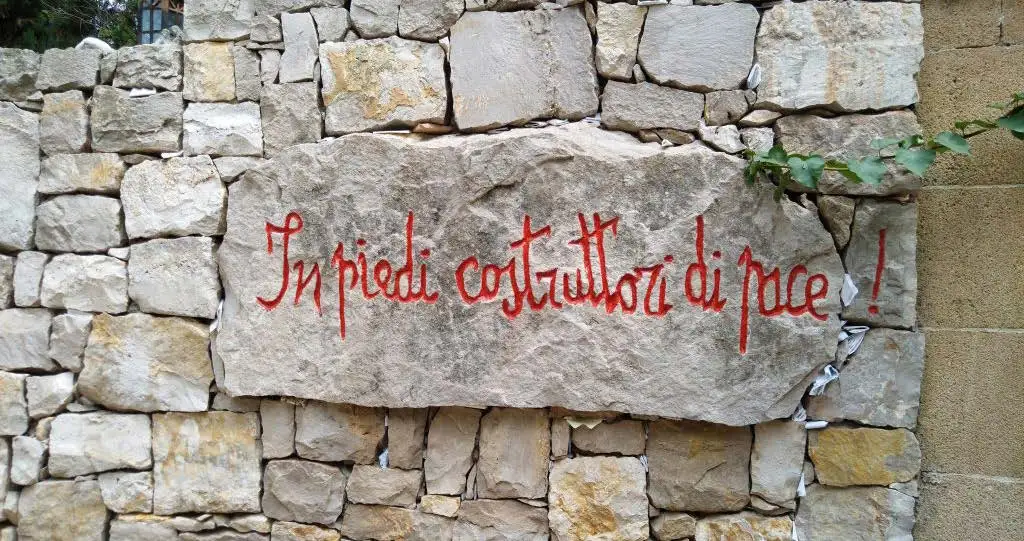 In piedi costruttori di pace !